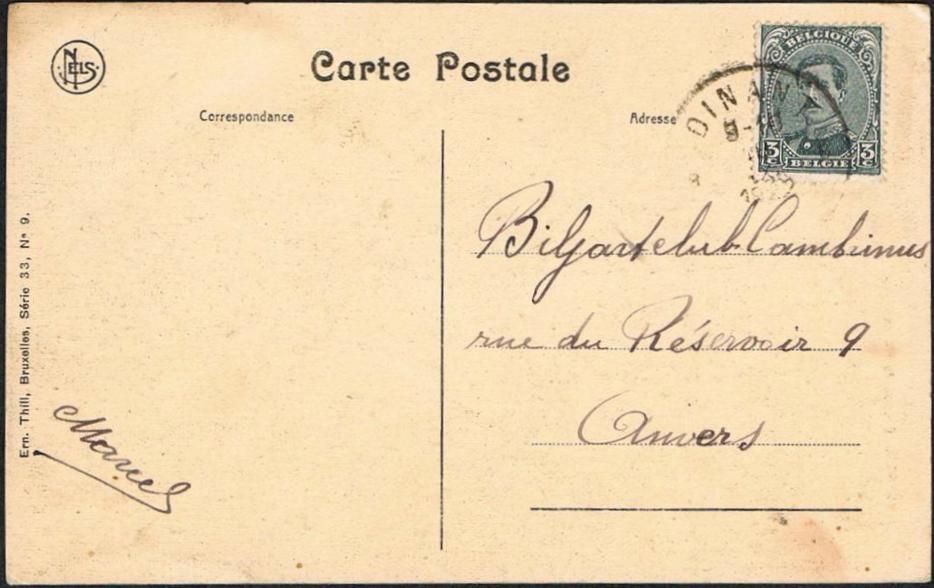 NELS
Carte Postale
Correspondance
Adresse
BELGIQUE
3 C
BELGIË
3 C
DINANT
Biljartclub Cambrinus
rue du Réservoir 9
Anvers
Marcel
Ern. Thill, Bruxelles, Série 33, No 9.